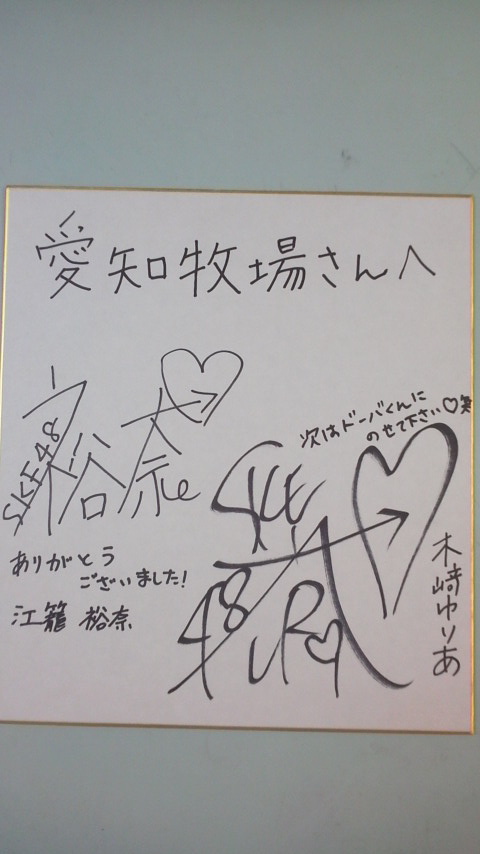 愛知牧場さんへ
SKE48
裕奈
ありがとう
ございました!
江籠 裕奈
次はドーバくんに
のせて下さい♡笑
SKE
48
木﨑ゆりあ